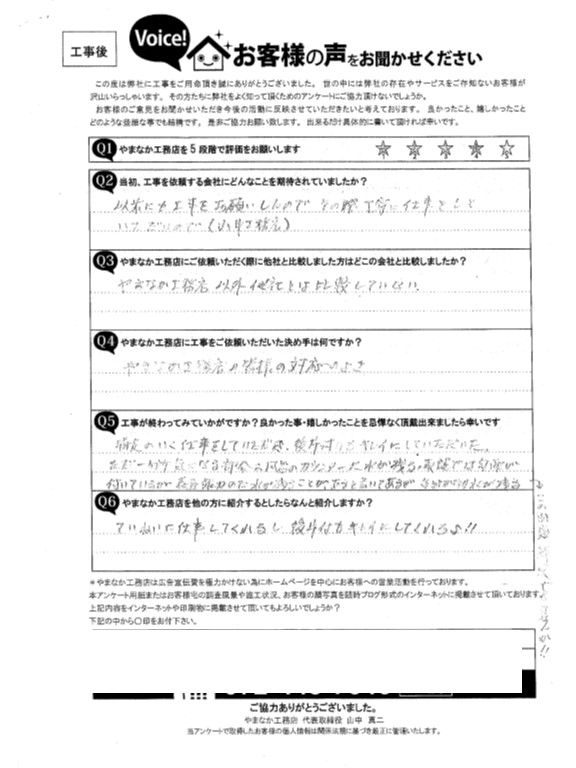 工事後
Voice!
お客様の声をお聞かせください
この度は弊社に工事をご用命頂き誠にありがとうございました。 世の中には弊社の存在やサービスをご存知ないお客様が
沢山いらっしゃいます。 その方たちに弊社をよく知って頂くためのアンケートにご協力頂けないでしょうか。
お客様のご意見をお聞かせいただき今後の活動に反映させていただきたいと考えております。 良かったこと、嬉しかったこと
どのような些細な事でも結構です。 是非ご協力お願い致します。 出来るだけ具体的に書いて頂ければ幸いです。
Q1 やまなか工務店を5段階で評価をお願いします
Q2 当初、工事を依頼する会社にどんなことを期待されていましたか?
以前にも工事をお願いしたので その際 丁寧に仕事をして
いただいたので
Q3 やまなか工務店にご依頼いただく際に他社と比較しました方はどこの会社と比較しましたか?
やまなか工務店以外 他社とは比較していない
Q4 やまなか工務店に工事をご依頼いただいた決め手は何ですか?
やまなか工務店の皆様の対応のよさ
Q5 工事が終わってみていかがですか?良かった事・嬉しかったことを忌憚なく頂戴出来ましたら幸いです
のいく仕事をしていただき、後片付けもキレイにしていただいた。
水が残る
付いているが
Q6 やまなか工務店を他の方に紹介するとしたらなんと紹介しますか?
ていねいに仕事してくれるし 後片付けもキレイにしてくれるよ!!
*やまなか工務店は広告宣伝費を極力かけない為にホームページを中心にお客様への営業活動を行っております。
本アンケート用紙またはお客様宅の調査風景や施工状況、お客様の顔写真を随時ブログ形式のインターネットに掲載させて頂いております。
上記内容をインターネットや印刷物に掲載させて頂いてもよろしいでしょうか?
下記の中から○印をお付下さい。
ご協力ありがとうございました。
やまなか工務店 代表取締役 山中 真二
当アンケートで取得したお客様の個人情報は関係法規に基づき厳正に管理いたします。